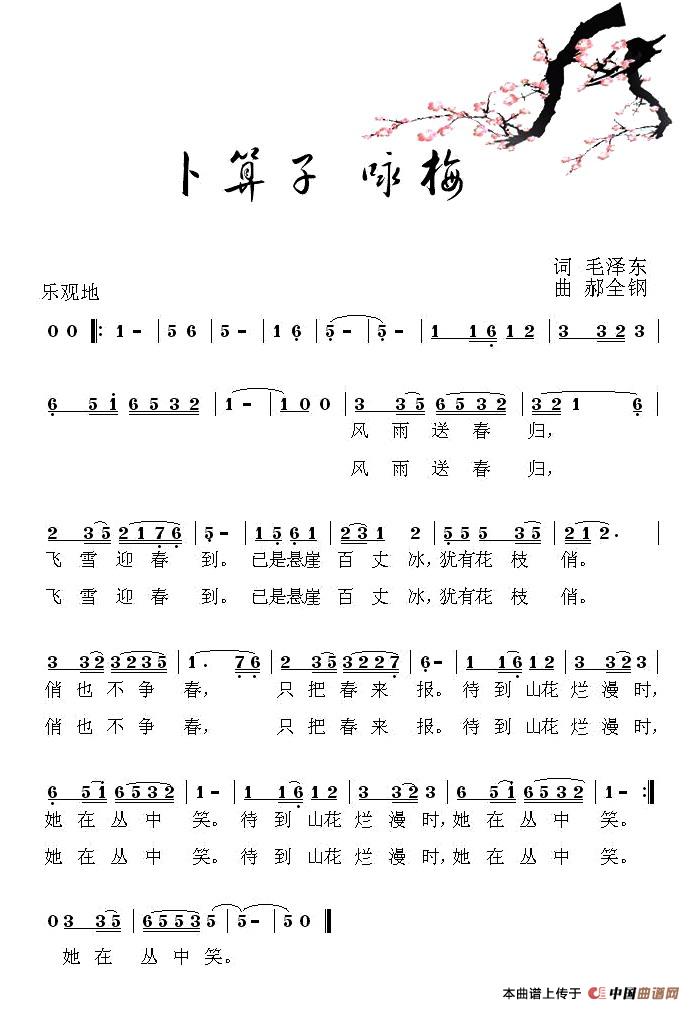 卜算子 咏梅
词 毛泽东
乐观地
曲 郝全钢
0 0 ‖: 1 - | 5 6 | 5 - | 1 6 | 5 - | 5 - | 1 1 6 1 2 | 3 3 2 3 |
6 5 i 6 5 3 2 | 1 - | 1 0 0 | 3 3 5 6 5 3 2 | 3 2 1 6 |
风 雨 送 春 归,
风 雨 送 春 归,
2 3 5 2 1 7 6 | 5 - | 1 5 6 1 | 2 3 1 2 | 5 5 5 3 5 | 2 1 2 . |
飞 雪 迎 春 到。 已是悬崖 百 丈 冰,犹有花 枝 俏。
飞 雪 迎 春 到。 已是悬崖 百 丈 冰,犹有花 枝 俏。
3 3 2 3 2 3 5 | 1 . 7 6 | 2 3 5 3 2 2 7 | 6 - | 1 1 6 1 2 | 3 3 2 3 |
俏 也 不 争 春, 只 把 春 来 报。待 到 山花 烂 漫 时,
俏 也 不 争 春, 只 把 春 来 报。待 到 山花 烂 漫 时,
6 5 i 6 5 3 2 | 1 - | 1 1 6 1 2 | 3 3 2 3 | 6 5 i 6 5 3 2 | 1 - :‖
她 在 丛 中 笑。待 到 山花 烂 漫 时,她 在 丛 中 笑。
她 在 丛 中 笑。待 到 山花 烂 漫 时,她 在 丛 中 笑。
0 3 3 5 | 6 5 5 3 5 | 5 - | 5 0 ‖
她 在 丛 中 笑。
本曲谱上传于 中国曲谱网